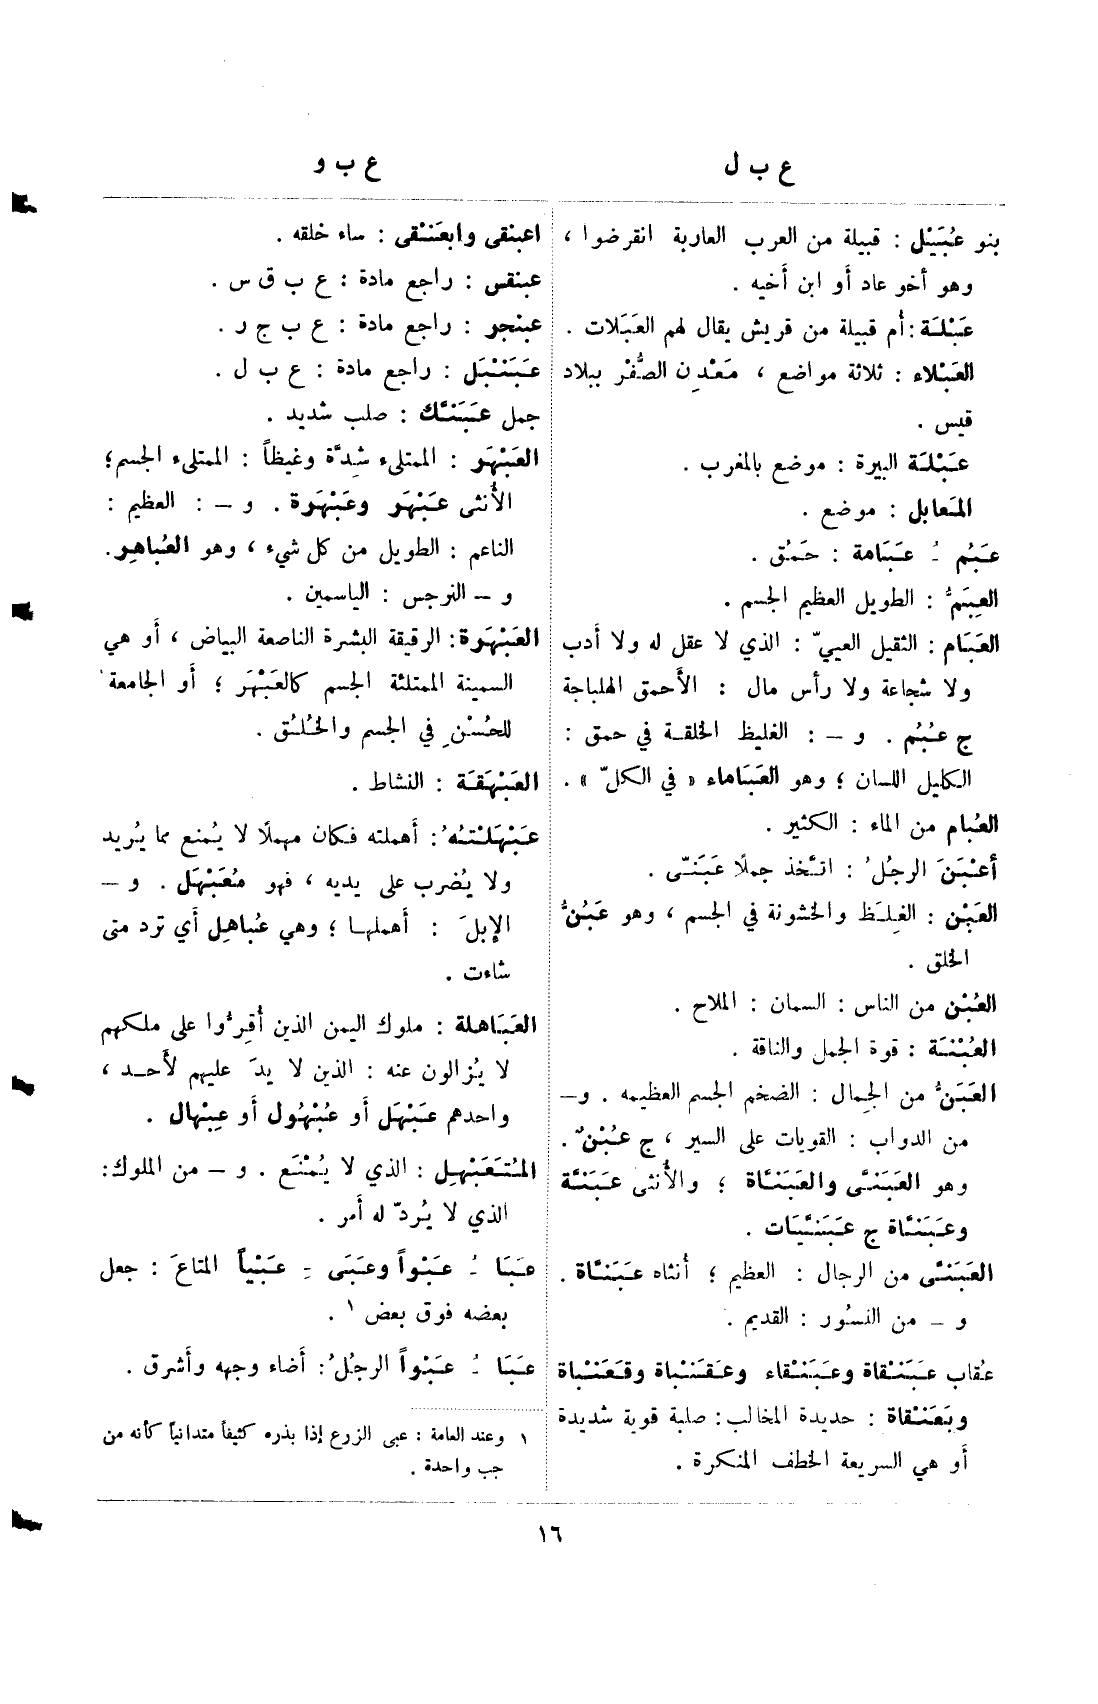 ع ب ل
بنو عُبَيْل : قبيلة من العرب العاربة انقرضوا ،
وهو أخو عاد أو ابن أخيه .
عَبْلَة : أم قبيلة من قريش يقال لهم العَبَلات .
العَبْلاء : ثلاثة مواضع ، مَعْدِن الصُّفْر ببلاد
قيس .
عَبْلَة البيرة : موضع بالمغرب .
المَعابل : موضع .
عَبُم ـُ عَبَامة : حَمُق .
العِبَمّ : الطويل العظيم الجسم .
العَبَام : الثقيل العييّ : الذي لا عقل له ولا أدب
ولا شجاعة ولا رأس مال : الأحمق الهلباجة
ج عُبُم . و – : الغليظ الخلقة في حمق :
الكليل اللسان ؛ وهو العَبَاماء « في الكلّ » .
العُبام من الماء : الكثير .
أَعْبَنَ الرجُلُ : اتَّخذ جملًا عَبَنّى .
العَبْن : الغِلَظ والخشونة في الجسم ، وهو عَبُنُّ
الخلق .
العُبْن من الناس : السمان : الملاح .
العُبْنَة : قوة الجمل والناقة .
العَبَنُّ من الجِمال : الضخم الجسم العظيمه . و–
من الدواب : القويات على السير ، ج عُبُنٌ .
وهو العَبَنَّى والعَبَنَّاة ؛ والأنثى عَبَنَّة
وعَبَنَّاة ج عَبَنَّيَات .
العَبَنَّى من الرجال : العظيم ؛ أنثاه عَبَنَّاة .
و – من النسُور : القديم .
عُقاب عَبَنْقاة وعَبَنْقاء وعَقَنْباة وقَعَنْباة
وبَعَنْقاة : حديدة المخالب : صلبة قوية شديدة
أو هي السريعة الخطف المنكرة .
ع ب و
اعبنقى وابعَنْقى : ساء خلقه .
عبنقس : راجع مادة : ع ب ق س .
عبنجر : راجع مادة : ع ب ج ر .
عَبَنْبَل : راجع مادة : ع ب ل .
جمل عَبَنَّك : صلب شديد .
العَبْهَر : الممتلىء شِدَّة وغيظاً : الممتلىء الجسم ؛
الأنثى عَبْهَر وعَبْهَرة . و – : العظيم :
الناعم : الطويل من كل شيء ، وهو العُباهِر .
و – النرجس : الياسمين .
العَبْهَرة : الرقيقة البشرة الناصعة البياض ، أو هي
السمينة الممتلئة الجسم كالعَبْهَر ؛ أو الجامعة
للحُسْنِ في الجسم والخُلُق .
العَبْهَقَة : النشاط .
عَبْهَلْتُه : أهملته فكان مهملًا لا يُمنع مما يُريد
ولا يُضرب على يديه ، فهو مُعَبْهَل . و –
الإبلَ : أهملها ؛ وهي عُباهِل أي ترد متى
شاءت .
العَبَاهلة : ملوك اليمن الذين أُقِرُّوا على ملكهم
لا يُزالون عنه : الذين لا يدَ عليهم لأحد ،
واحدهم عَبْهَل أو عُبْهُول أو عِبْهال .
المُتَعَبْهِل : الذي لا يُمْنَع . و – من الملوك :
الذي لا يُردّ له أمر .
عَبَا ـُ عَبْواً وعَبَى ـِ عَبْياً المتاعَ : جعل
بعضه فوق بعض ١ .
عَبَا ـُ عَبْواً الرجُلُ : أضاء وجهه وأشرق .
١ وعند العامة : عبى الزرع إذا بذره كثيفاً متدانياً كأنه من
جب واحدة .
١٦